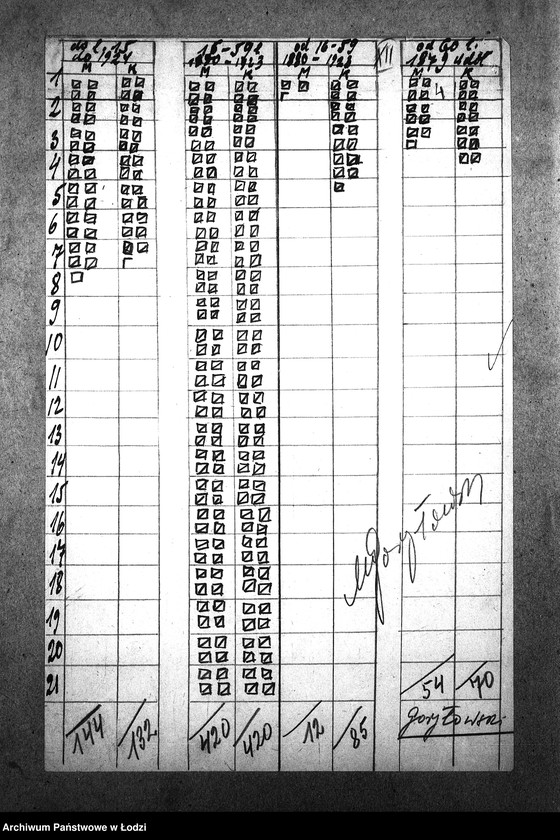 do l. 15 15-59 l. od 16-59 XII od 60 l.
do 1924 1880-1923 1880-1923 1879
M K M K M K M K
1
2
3
4
5
6
7
8
9
10
11
12
13
14
15
16
17
18
19
20
21
54 70
144 132 420 420 12 85
Goryłowski
Archiwum Państwowe w Łodzi